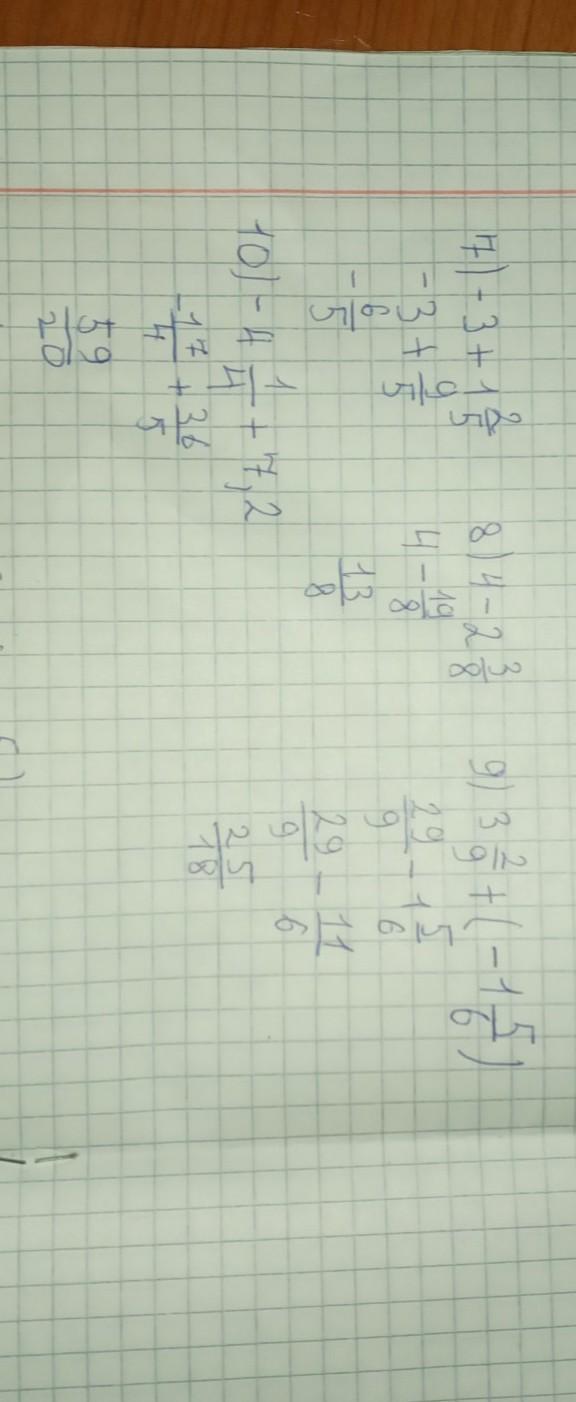 7) -3 + 1 4/5
-3 + 9/5
- 6/5
8) 4 - 2 3/8
4 - 19/8
13/8
9) 3 2/9 + ( - 1 5/6 )
29/9 - 1 5/6
29/9 - 11/6
25/18
10) - 4 1/4 + 7,2
- 17/4 + 36/5
59/20